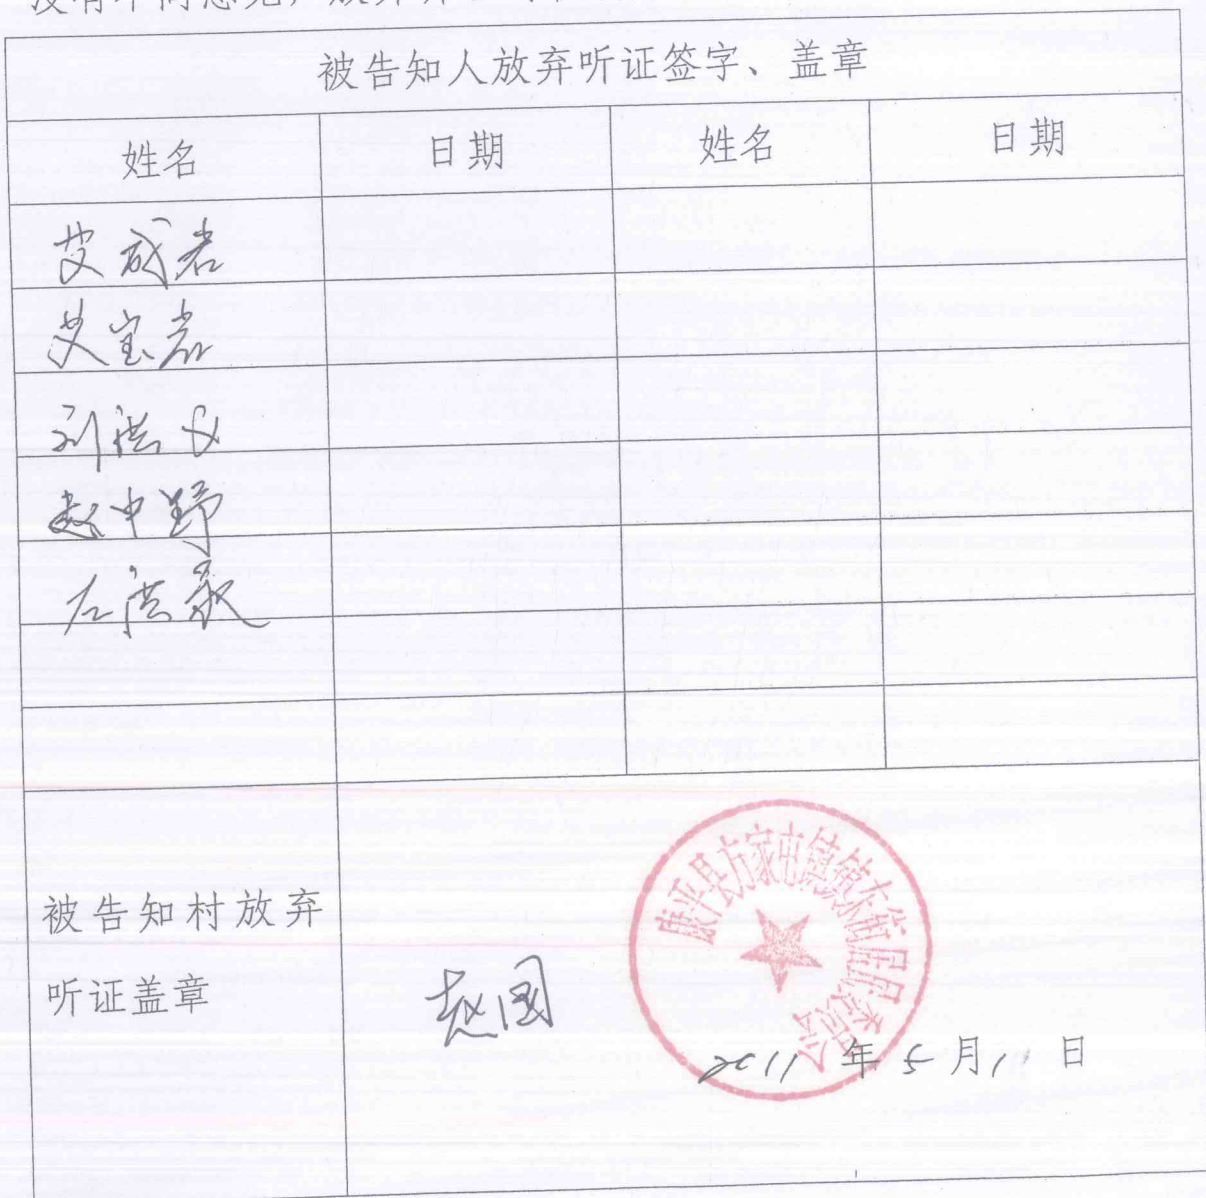 被告知人放弃听证签字、盖章
姓名 日期 姓名 日期
艾成岩
艾宝岩
刘洪义
赵中野
左洪承
被告知村放弃
听证盖章
赵国
康平县方家屯镇镇东街居民委员会
2011 年 5 月 11 日